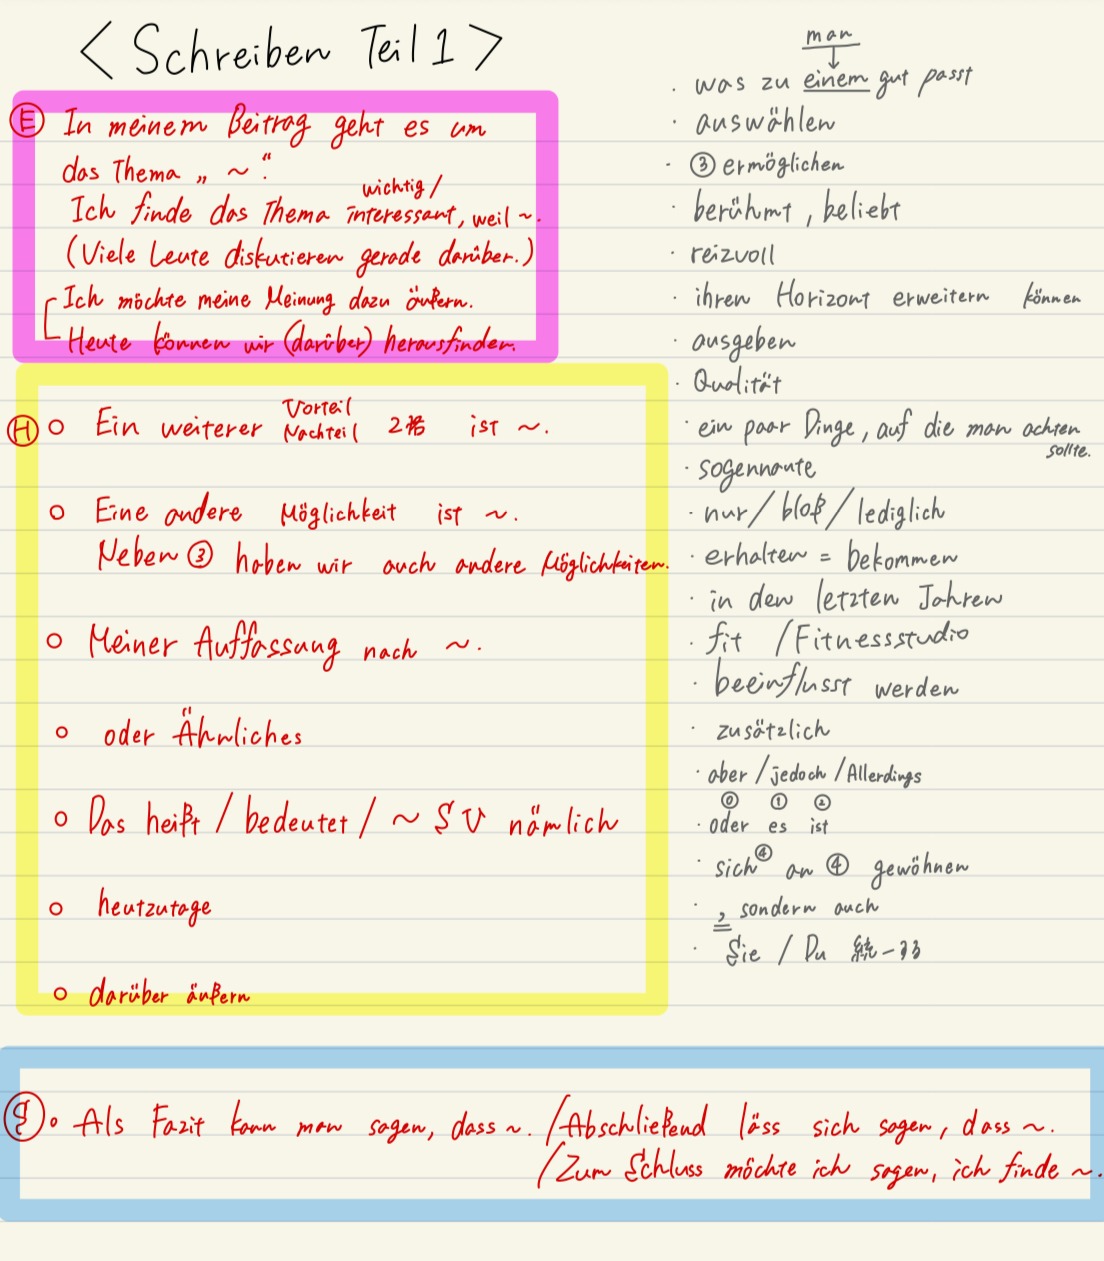 < Schreiben Teil 1 >
Ⓔ In meinem Beitrag geht es um
das Thema „ ~ “.
wichtig /
Ich finde das Thema interessant, weil ~.
(Viele Leute diskutieren gerade darüber.)
Ich möchte meine Meinung dazu äußern.
Heute können wir (darüber) herausfinden.
Ⓗ
○ Ein weiterer Vorteil ist ~.
Nachteil
○ Eine andere Möglichkeit ist ~.
Neben ③ haben wir auch andere Möglichkeiten.
○ Meiner Auffassung nach ~.
○ oder Ähnliches
○ Das heißt / bedeutet / ~ S V nämlich
○ heutzutage
○ darüber äußern
Ⓢ ○ Als Fazit kann man sagen, dass ~. / Abschließend läss sich sagen, dass ~.
/ Zum Schluss möchte ich sagen, ich finde ~.
man
↓
· was zu einem gut passt
· auswählen
· ③ ermöglichen
· berühmt, beliebt
· reizvoll
· ihren Horizont erweitern können
· ausgeben
· Qualität
· ein paar Dinge, auf die man achten
sollte.
· sogennante
· nur / bloß / lediglich
· erhalten = bekommen
· in den letzten Jahren
· fit / Fitnessstudio
· beeinflusst werden
· zusätzlich
· aber / jedoch / Allerdings
⓪ ① ②
· oder es ist
· sich④ an ④ gewöhnen
· , sondern auch
· Sie / Du 統一する